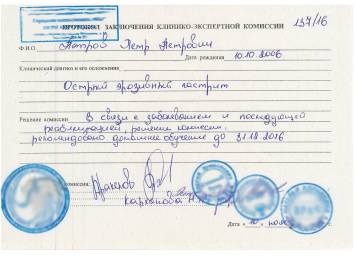 ПРОТОКОЛ ЗАКЛЮЧЕНИЯ КЛИНИКО-ЭКСПЕРТНОЙ КОМИССИИ 197/16
Ф.И.О. Петров Петр Петрович
Дата рождения 10.10.2006
Клинический диагноз и его осложнения
Острый эрозивный гастрит
Решение комиссии В связи с заболеванием и последующей
реабилитацией, решением комиссии,
рекомендовано домашнее обучение до 31.12.2016
комиссии
Дата « 10 »